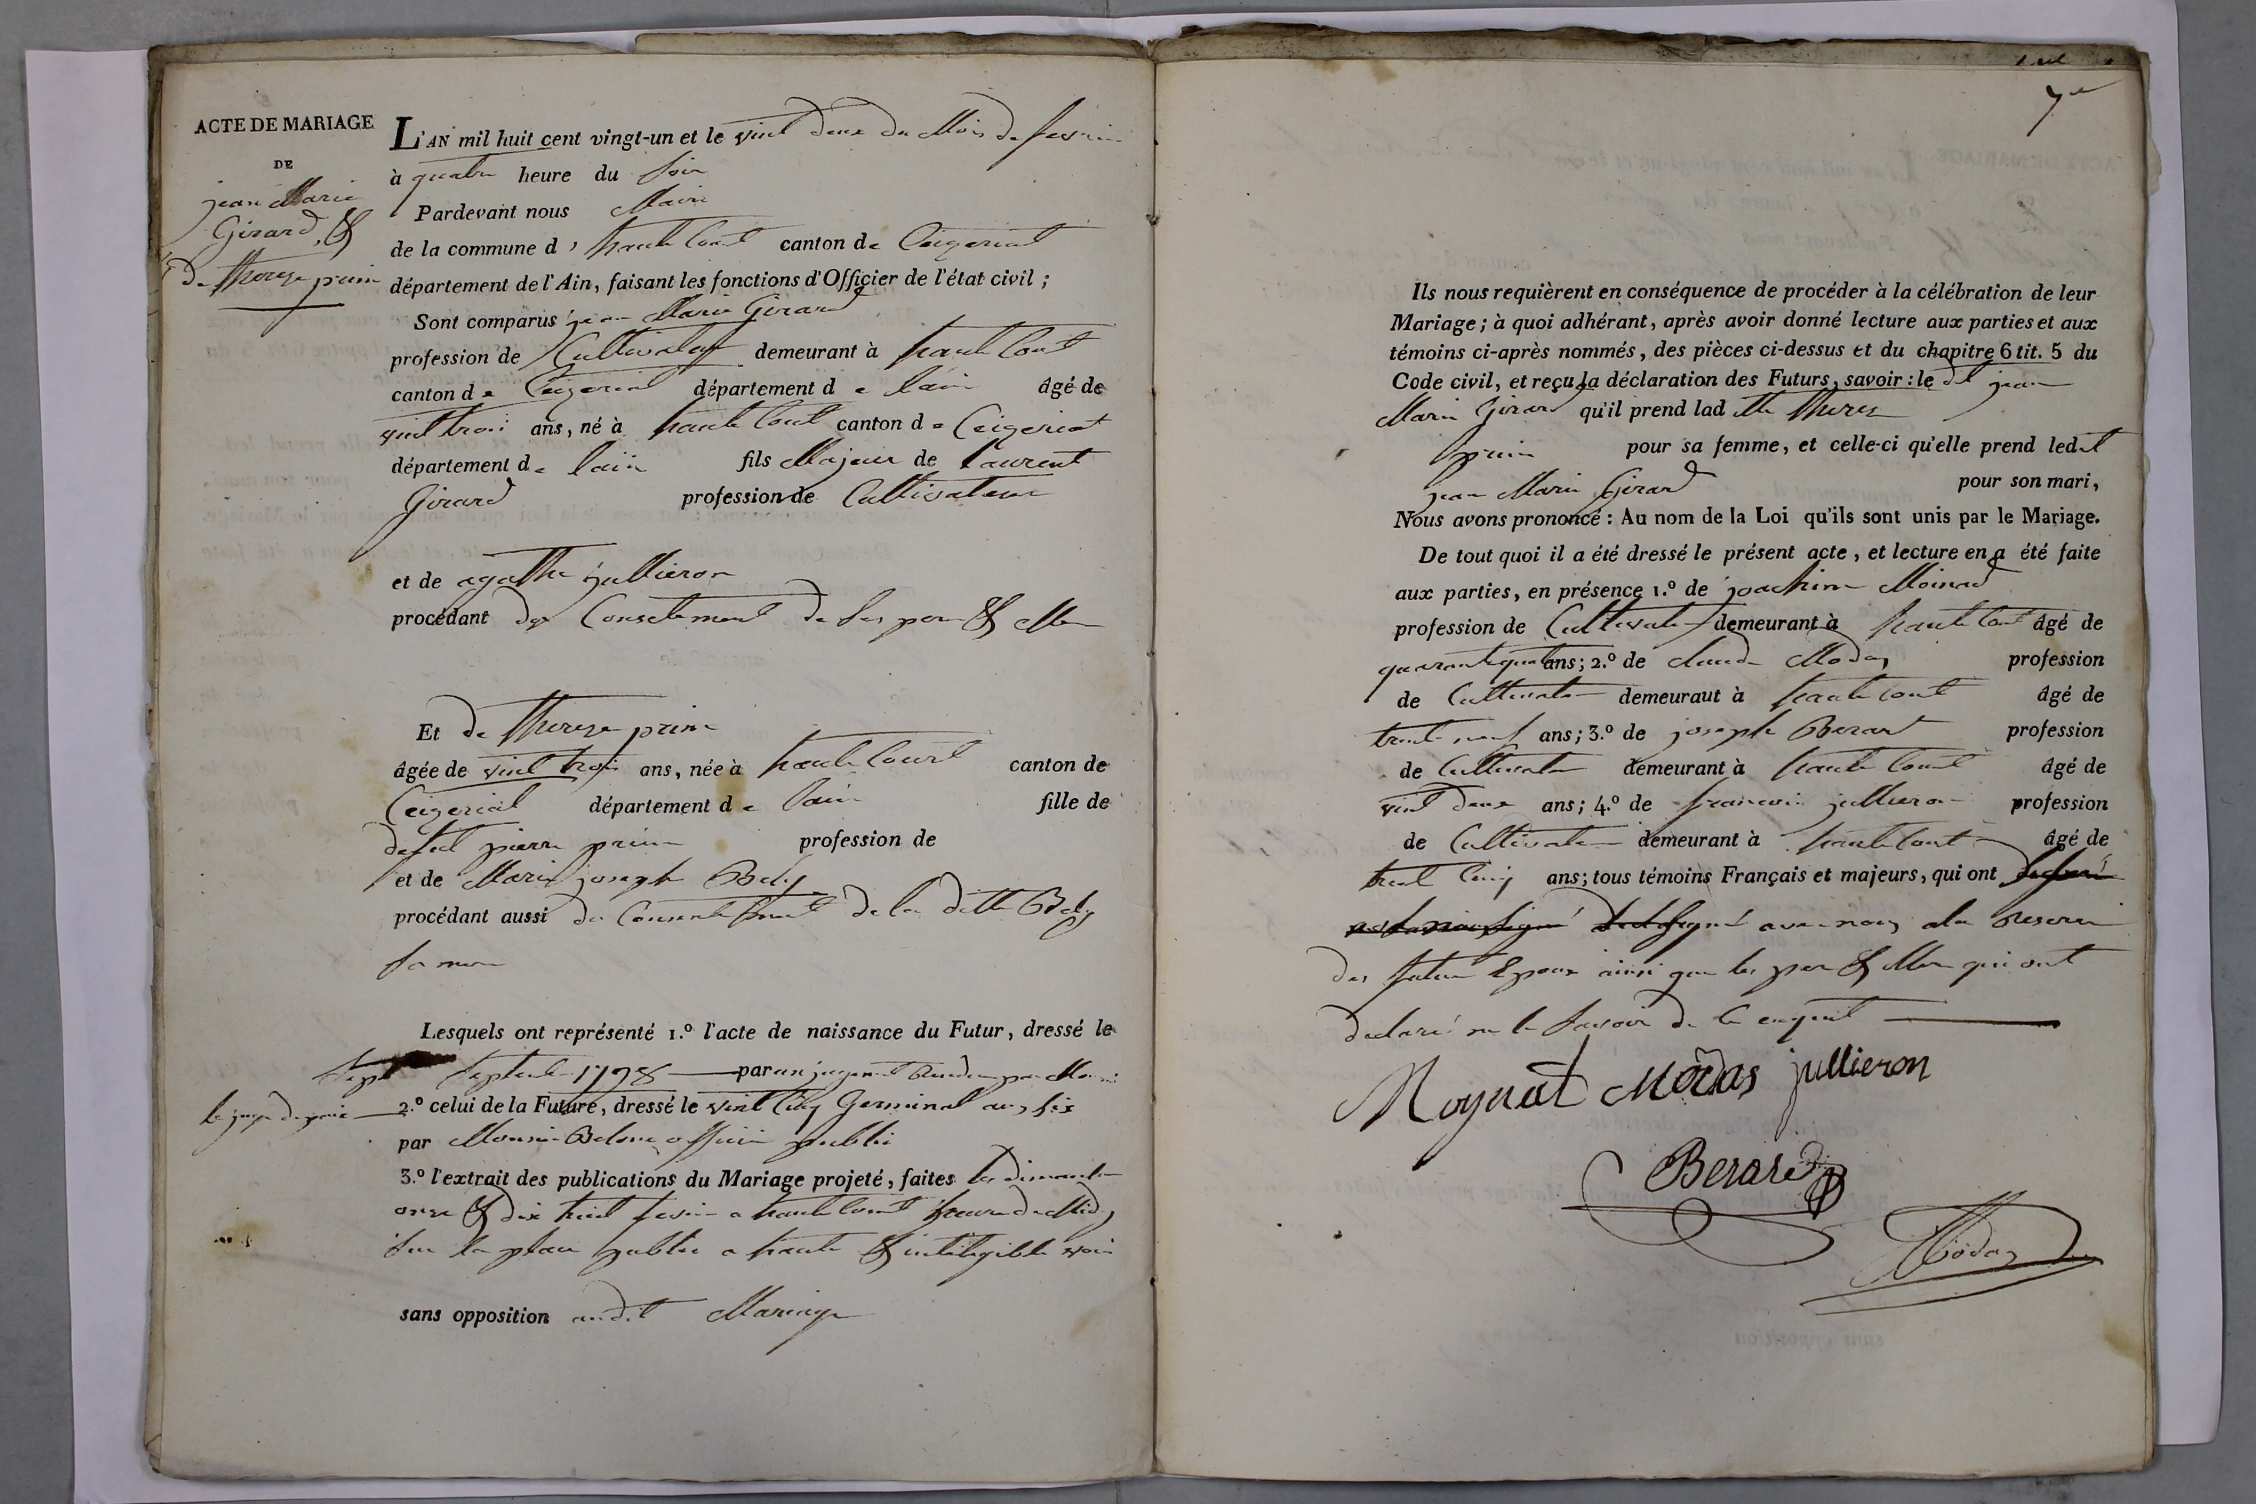 ACTE DE MARIAGE
DE
jean Marie
Girard, &
de thereze prin
L'AN mil huit cent vingt-un et le vint deux du Mois de fevrier
à quatre heure du soir
Pardevant nous Maire
de la commune d' hautecourt canton de Ceyzeriat
département de l'Ain, faisant les fonctions d'Officier de l'état civil ;
Sont comparus jean Marie Girard
profession de Cultivateur demeurant à hautecourt
canton de Ceyzeriat département de l'ain âgé de
vint trois ans, né à hautecourt canton de Ceizeriat
département de l'ain fils Majeur de Laurent
Girard profession de Cultivateur
et de agathe jullieron
procédant du Consetement de ses pere & Mere
Et de thereze prin
âgée de vint trois ans, née à hautecourt canton de
Ceizeriat département de l'ain fille de
defut pierre prin profession de
et de Marie joseph Bely
procédant aussi du Consentement de la ditte Bely
sa mere
Lesquels ont représenté 1.º l'acte de naissance du Futur, dressé le
Septembre 1798 par un jugement Rendu par
le juge de paix
2.º celui de la Future, dressé le vint cinq Germinal an six
par officier public
3.º l'extrait des publications du Mariage projeté, faites les dimanches
onze & dix huit fevrier a hautecourt heure de Midy
sur la place public a haute & intelligible voix
sans opposition audit Mariage
7
Ils nous requièrent en conséquence de procéder à la célébration de leur
Mariage ; à quoi adhérant, après avoir donné lecture aux parties et aux
témoins ci-après nommés, des pièces ci-dessus et du chapitre 6 tit. 5 du
Code civil, et reçu la déclaration des Futurs, savoir : le dt jean
Marie Girard qu'il prend ladtte therez
prin pour sa femme, et celle-ci qu'elle prend ledit
jean Marie Girard pour son mari,
Nous avons prononcé : Au nom de la Loi qu'ils sont unis par le Mariage.
De tout quoi il a été dressé le présent acte, et lecture en a été faite
aux parties, en présence 1.º de joachim
profession de Cultivateur demeurant à hautecourt âgé de
quarante quatre ans ; 2.º de claude Modas profession
de Cultivateur demeuraut à hautecourt âgé de
trente neuf ans ; 3.º de joseph Berard profession
de Cultivateur demeurant à hautecourt âgé de
vint deux ans ; 4.º de francois jullieron profession
de Cultivateur demeurant à hautecourt âgé de
trent cinq ans ; tous témoins Français et majeurs, qui ont
signé avec nous a la Reserve
des futur Epoux ainsi que les pere & Mere qui ont
declaré ne le savoir de ce enquit
Moynat Modas jullieron
Berard
Modas